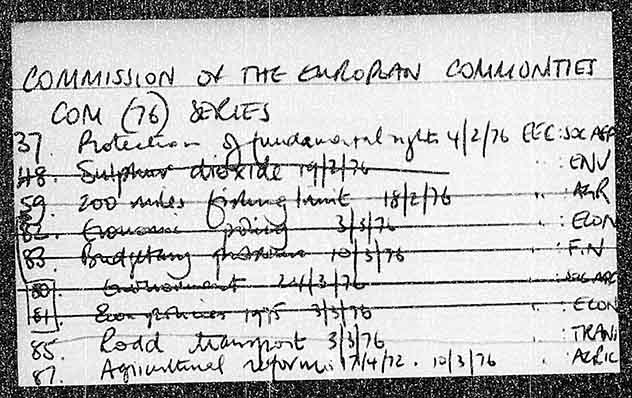 COMMISSION of THE EUROPEAN COMMUNTIES
COM (76) SERIES
37. Protection of fundamental rights 4/2/76 EEC: SOC AFF
48. Sulphur dioxide 19/2/76 " : ENV
59. 200 miles fishing limit 18/2/76 " : AGR
82. Economic policy 3/3/76 " : ECON
83. Budgetary 10/3/76 " : FIN
80. Environment 24/3/76 "
81. Econ policies 1975 3/3/76 " : ECON
85. Road transport 3/3/76 " : TRAN
87. Agricultural reform: 17/4/72. 10/3/76 " : AGRIC